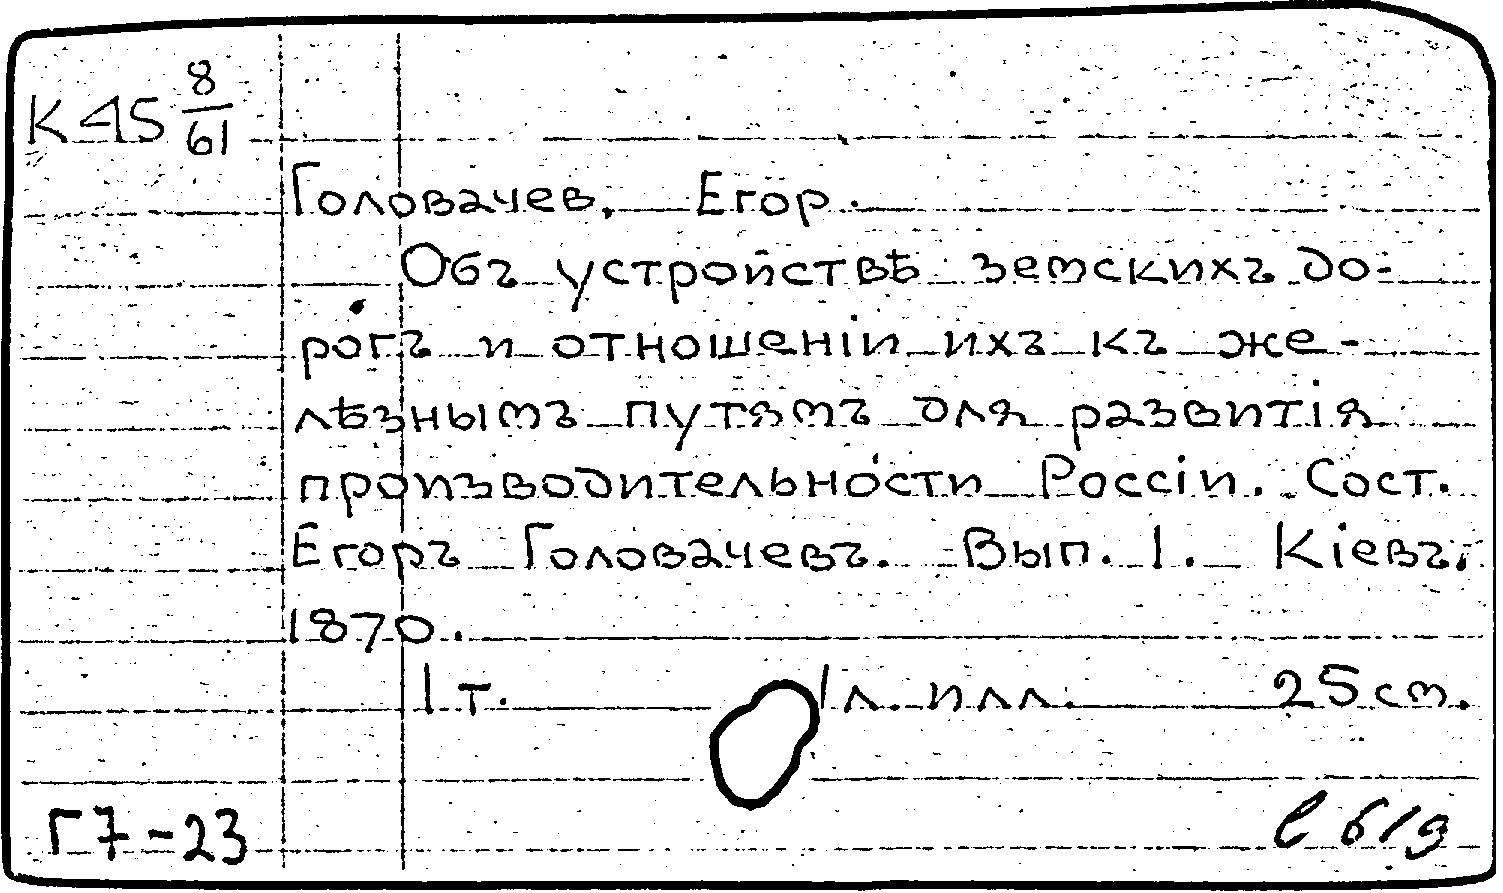 К 45 8/61
Головачев, Егор.
Объ устройствѣ земскихъ до-
рогъ и отношеніи ихъ къ же-
лѣзнымъ путямъ для развитія
производительности Россіи. Сост.
Егоръ Головачевъ. Вып. 1. Кіевъ,
1870.
1 т. 1 л. илл. 25 cm.
Г7-23